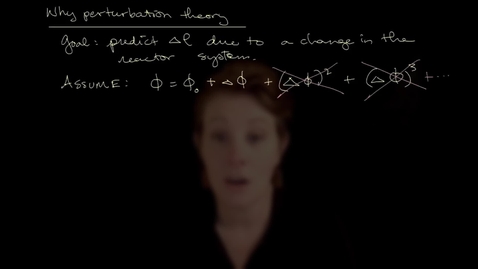 Why perturbation theory
Goal: predict Δρ due to a change in the
reactor system.
ASSUME: ϕ = ϕ₀ + Δϕ + (Δϕ)² + (Δϕ)³ + ...